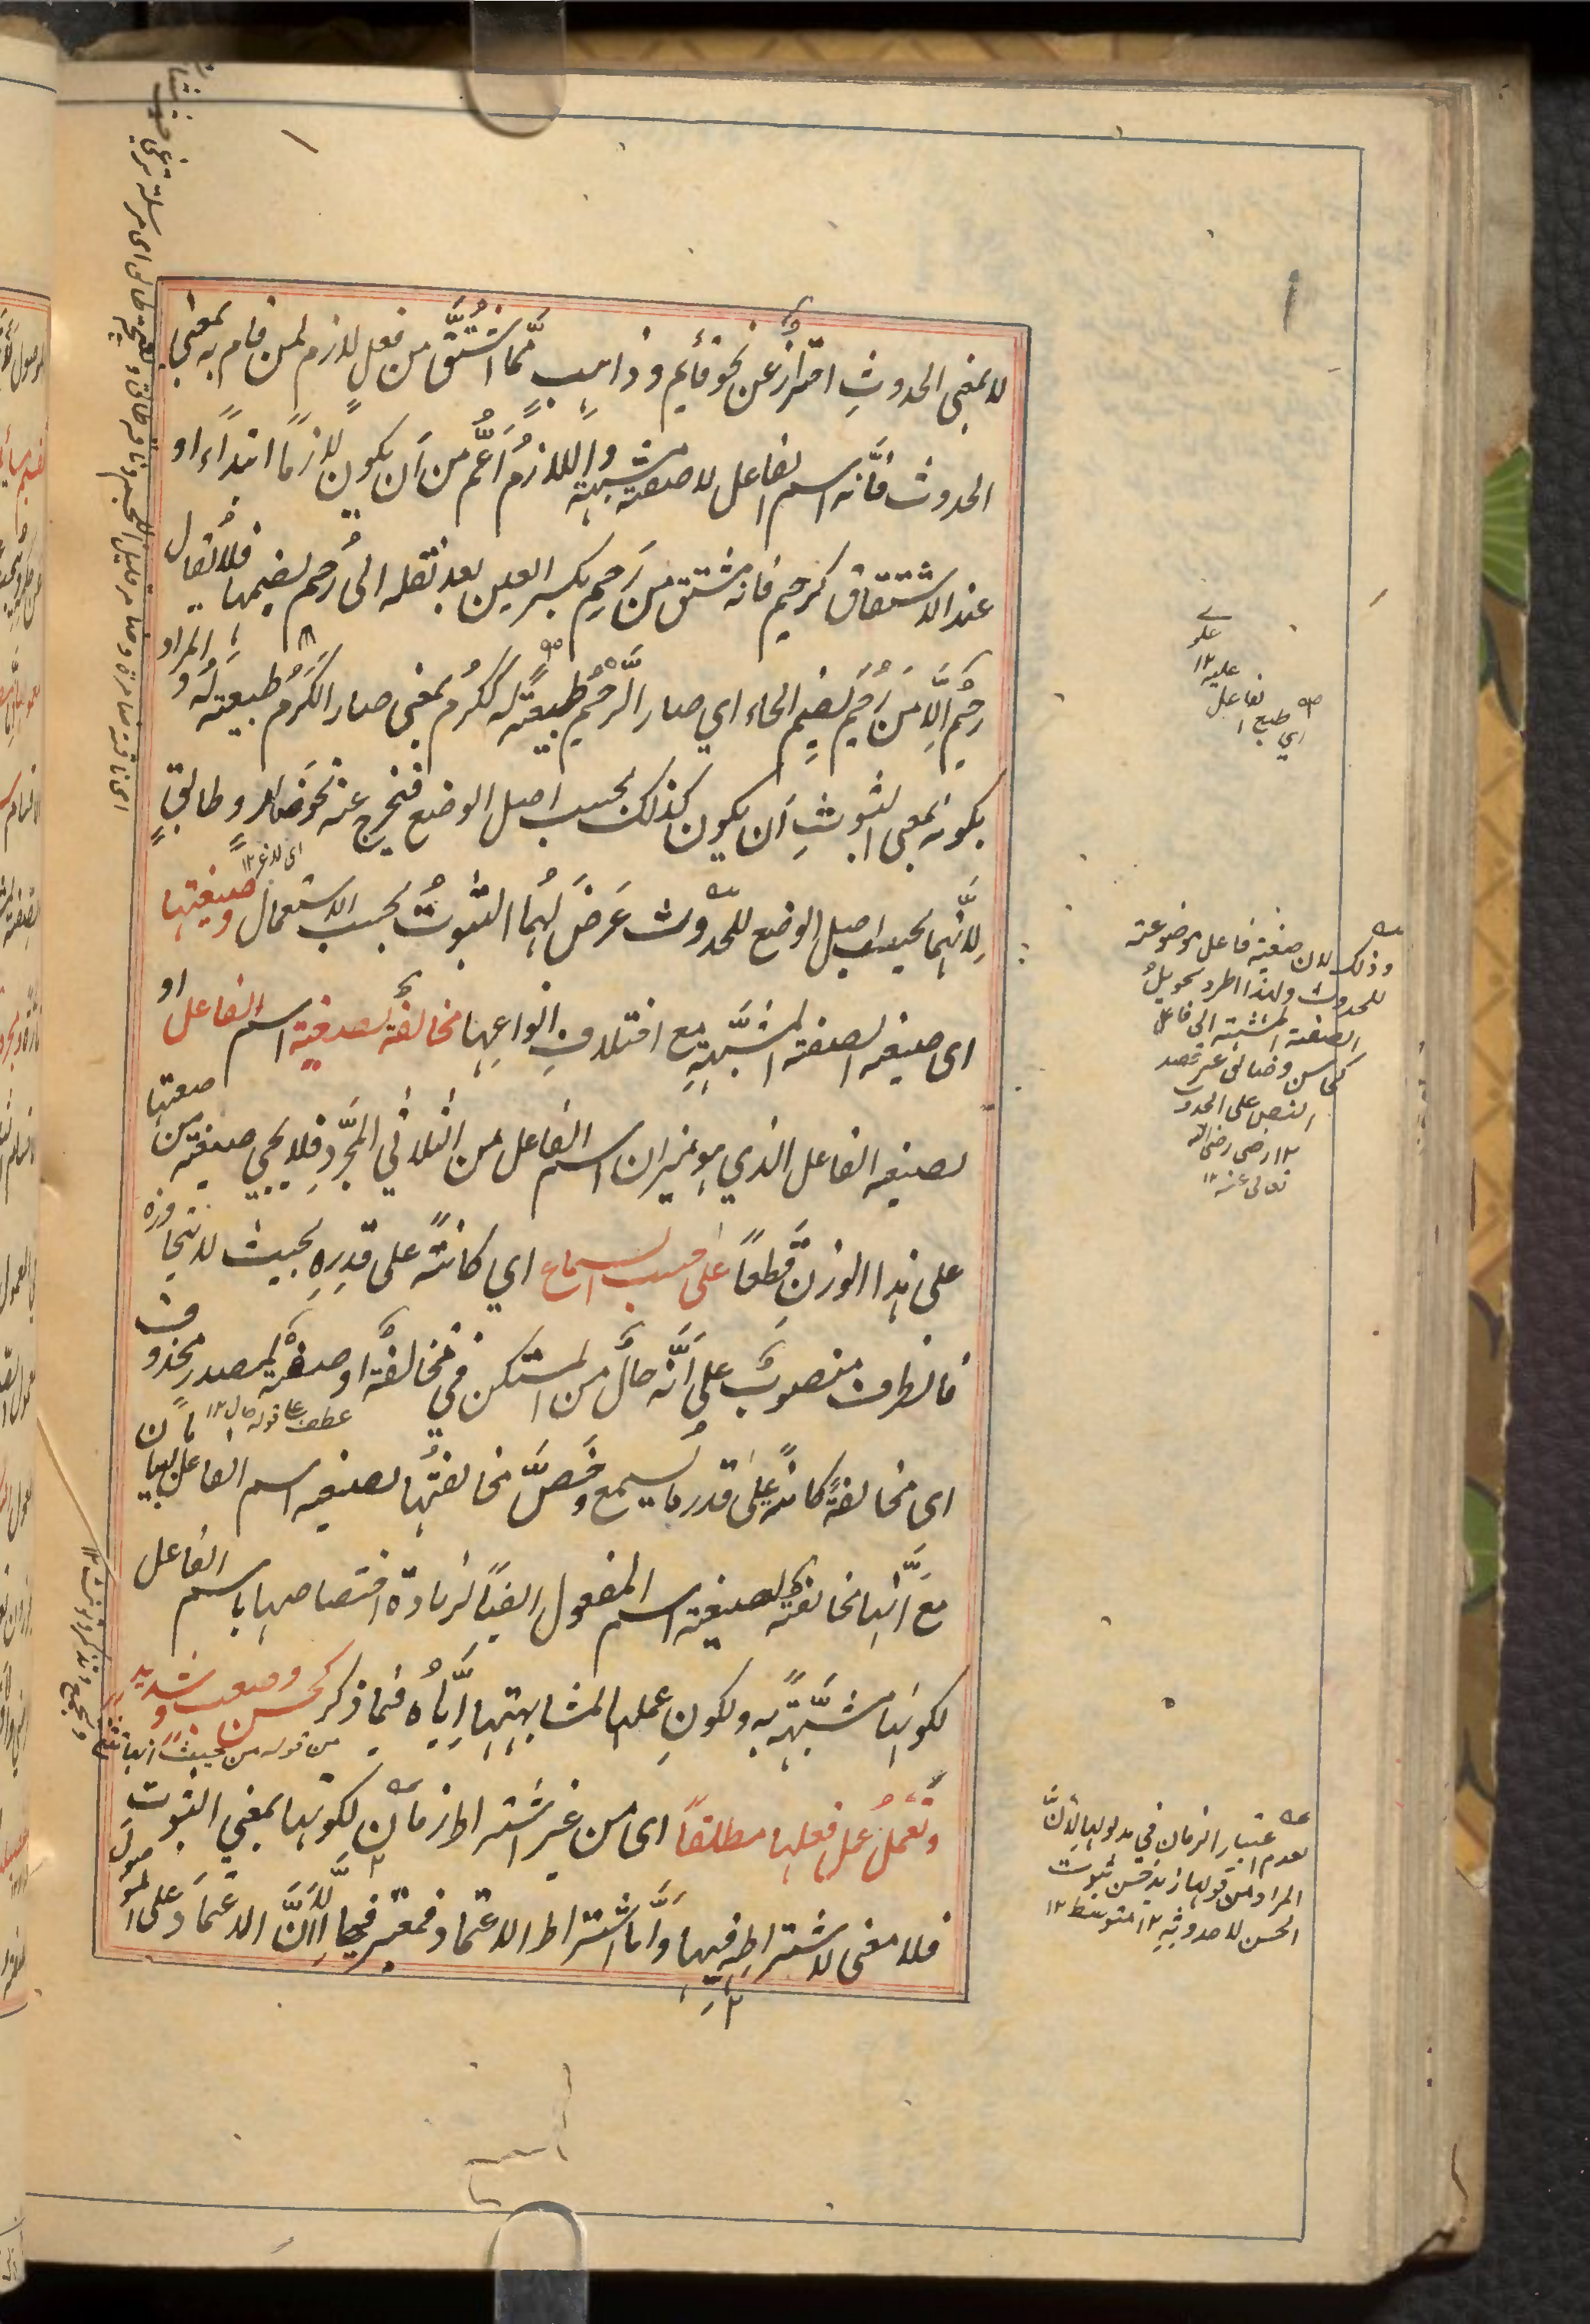 لا بمعنى الحدوثِ احترازٌ عن نحو قائمٍ وذاهبٍ ممَّا اشتُقَّ من فعلٍ لازمٍ لمن قام به بمعنى
الحدوث فانَّه اسم الفاعل لا صفة مشبهة واللازمُ أعمُّ من أن يكون لازمًا ابتداءً او
عند الاشتقاق كرحيم فانه مشتق من رَحِمَ بكسر العين بعد نقله الى رَحُمَ بضمها فلا يُقال
رحيمٌ اِلَّا مِن رَحُمَ بضم الحاء اي صار الرُّحْمُ طبيعةً له ككَرُمَ بمعنى صار الكرمُ طبيعته له والمراد
بكونه بمعنى الثبوتِ أن يكون كذلك بحسب اصل الوضع فيخرج عنه نحوُ ضامرٍ وطالقٍ
لِانَّهما بحسب اصل الوضع للحدوث عَرَضَ لهُما الثبوتُ بحسب الاستعمال وصيغتها
اى صيغة الصفة المشبَّهةِ مع اختلافِ انواعِها مخالفةٌ لصيغة اسم الفاعل او
لصيغة الفاعل الذي هو ميزان اسم الفاعل من الثلاثي المجرَّدِ فلا يجيء صيغة من صيغتها
على هذا الوزن قطعًا على حسب السماع اي كائنةً على قدرِهِ بحيث لا تتجاوزه
فالظرف منصوبٌ على أنَّه حالٌ من المستكن في مخالفة او صفةٌ لمصدر محذوف
عطف على قوله حال ١٢
اى مخالفةً كائنةً على قدر ما يُسمع وخَصَّ مخالفتُها لصيغة اسم الفاعل بالبيان
مع أنَّها مخالفةٌ لصيغة اسم المفعول ايضًا لزيادة اختصاصها باسم الفاعل
لكونها مشبَّهةً به ولكونِ عملها لمشابهتها اِيَّاهُ فيما ذكر كحسن وصعب وشديد
وتعملُ عملَ فعلِها مطلقًا اى من غير اشتراط زمانٍ لكونها بمعنى الثبوت
فلا معنى لاشتراطِهِ فيها وأمَّا اشتراط الاعتماد فمعتبر فيها اِلَّا أنَّ الاعتمادَ على الموصول
اي طبع الفاعل
عليه ١٢
وذلك لان صيغة فاعل موضوعة
للحدوث ولهذا اطرد تحويلُ
الصفة المشبهة الى فاعل
كحاسن وضائق عند قصد
النص على الحدوث
١٢ رضى رضى الله
تعالى عنه ١٢
لعدم اعتبار الزمان في مدلولها لانَّ
المراد من قولها زيد حسن ثبوت
الحسن لا حدوثه ١٢ متوسط ١٢